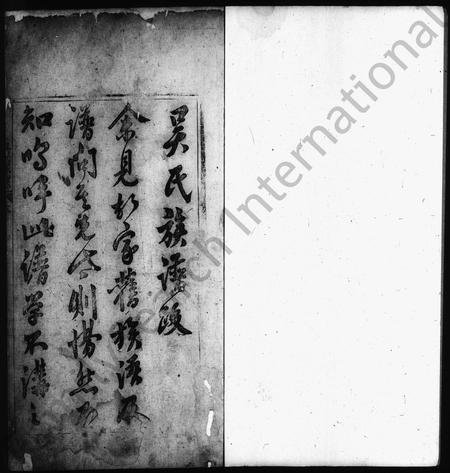 吳氏族譜跋
余見於家舊族譜及
譜問其宗派則懵然不
知嗚呼此譜學不講之
Research International